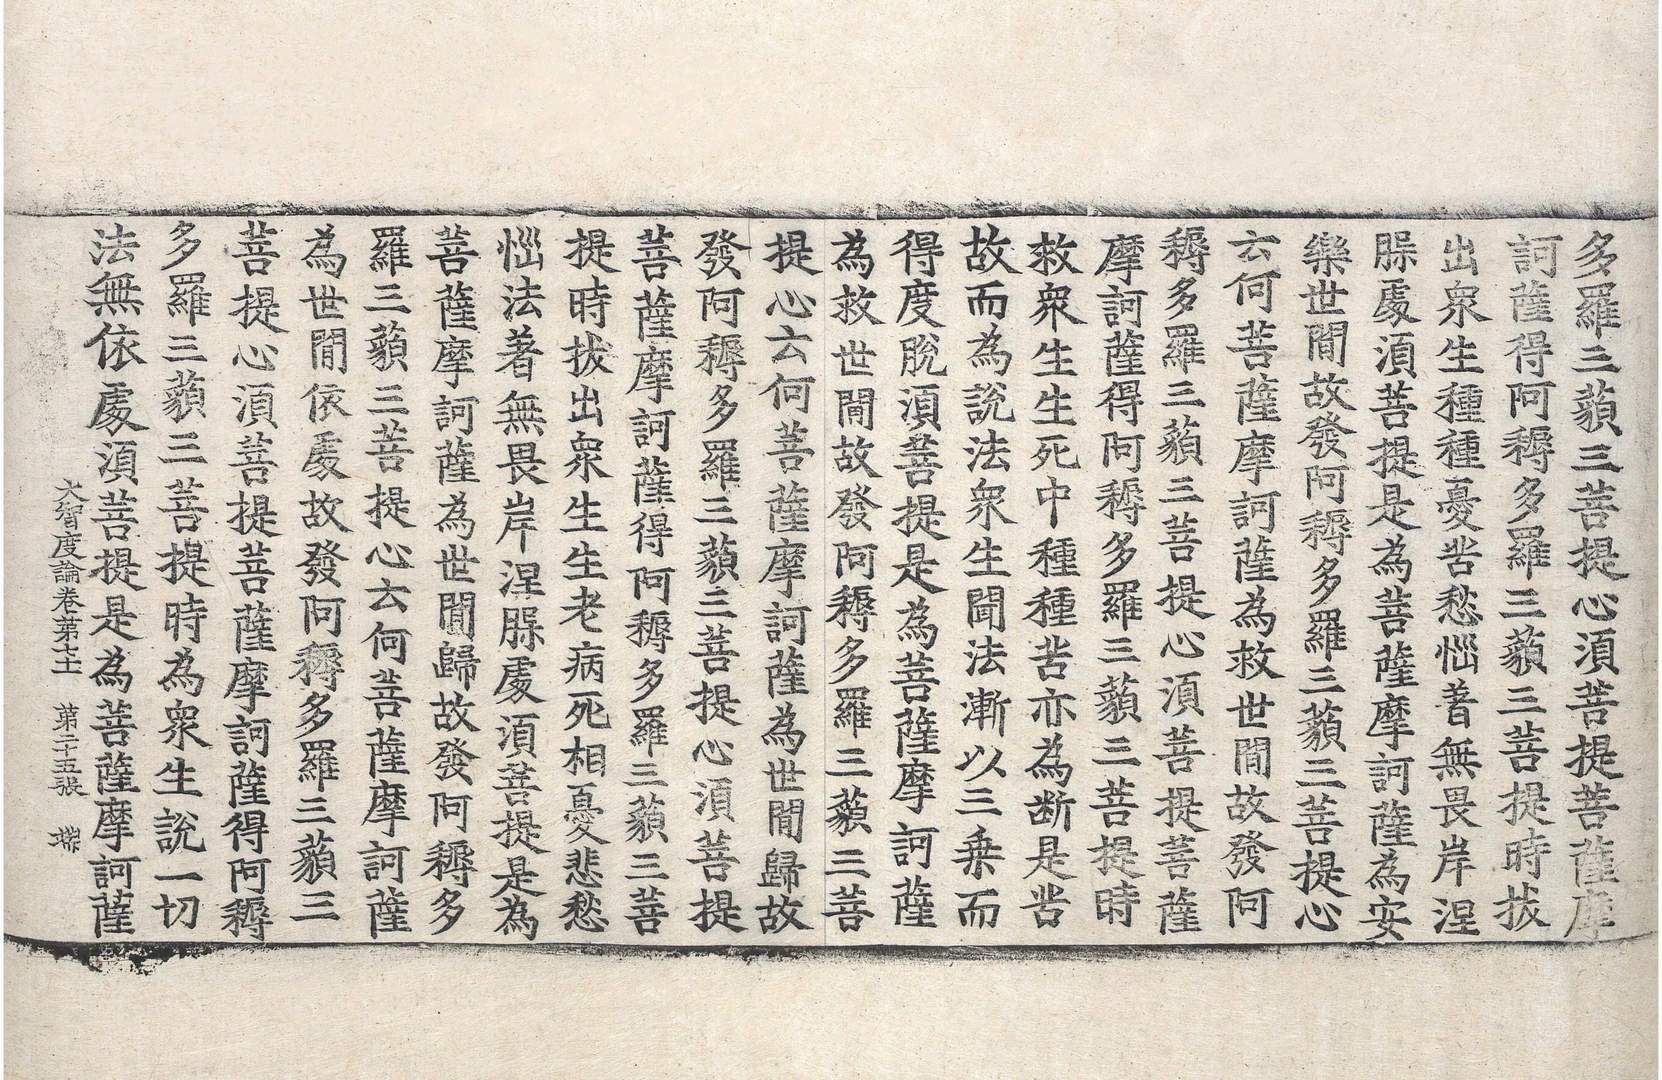 多羅三藐三菩提心湏菩提菩薩摩
訶薩得阿耨多羅三藐三菩提時拔
出衆生種種憂苦愁惱著無畏岸涅
槃處湏菩提是為菩薩摩訶薩為安
樂世間故發阿耨多羅三藐三菩提心
云何菩薩摩訶薩為救世間故發阿
耨多羅三藐三菩提心湏菩提菩薩
摩訶薩得阿耨多羅三藐三菩提時
救衆生生死中種種苦亦為断是苦
故而為說法衆生聞法漸以三乗而
得度脫湏菩提是為菩薩摩訶薩
為救世間故發阿耨多羅三藐三菩
提心云何菩薩摩訶薩為世間歸故
發阿耨多羅三藐三菩提心湏菩提
菩薩摩訶薩得阿耨多羅三藐三菩
提時拔出衆生生老病死相憂悲愁
惱法著無畏岸涅槃處湏菩提是為
菩薩摩訶薩為世間歸故發阿耨多
羅三藐三菩提心云何菩薩摩訶薩
為世間依處故發阿耨多羅三藐三
菩提心湏菩提菩薩摩訶薩得阿耨
多羅三藐三菩提時為衆生說一切
法無依處湏菩提是為菩薩摩訶薩
大智度論卷第七十一 第二十五張